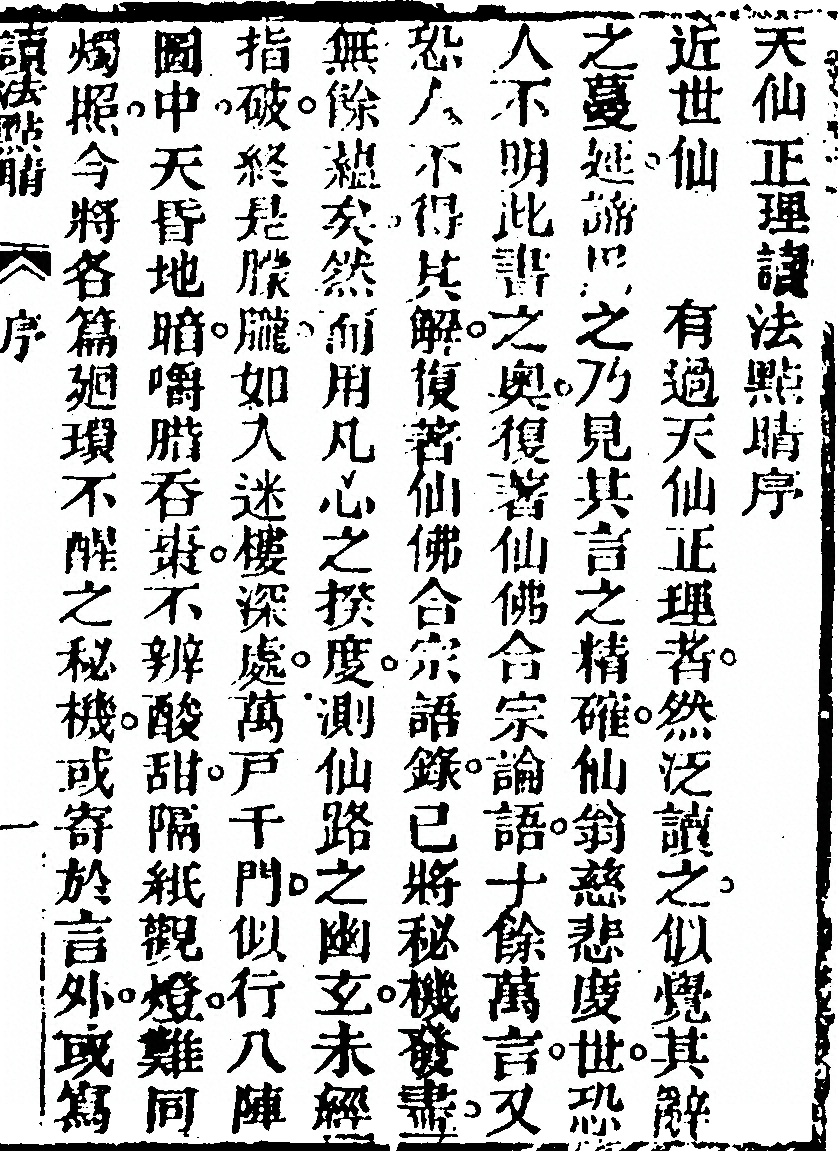 天仙正理讀法點睛序
近世仙 有過天仙正理者然泛讀之似覺其辭
之蔓延諦思之乃見其言之精確仙翁慈悲度世恐
人不明此書之奧復著仙佛合宗論語十餘萬言又
恐人不得其解復著仙佛合宗語錄已將秘機發盡
無餘蘊矣然而用凡心之揆度測仙路之幽玄未經
指破終是朦朧如入迷樓深處萬戶千門似行八陣
圖中天昏地暗嚼腊吞棗不辨酸甜隔紙觀燈難同
燭照今將各篇廻環不醒之秘機或寄於言外或寫
讀法點睛 序 一